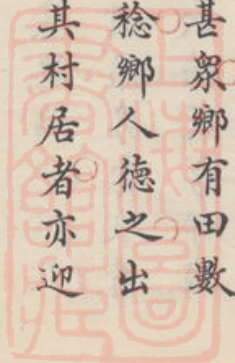 甚衆鄉有田數
稔鄉人德之出
其村居者亦迎